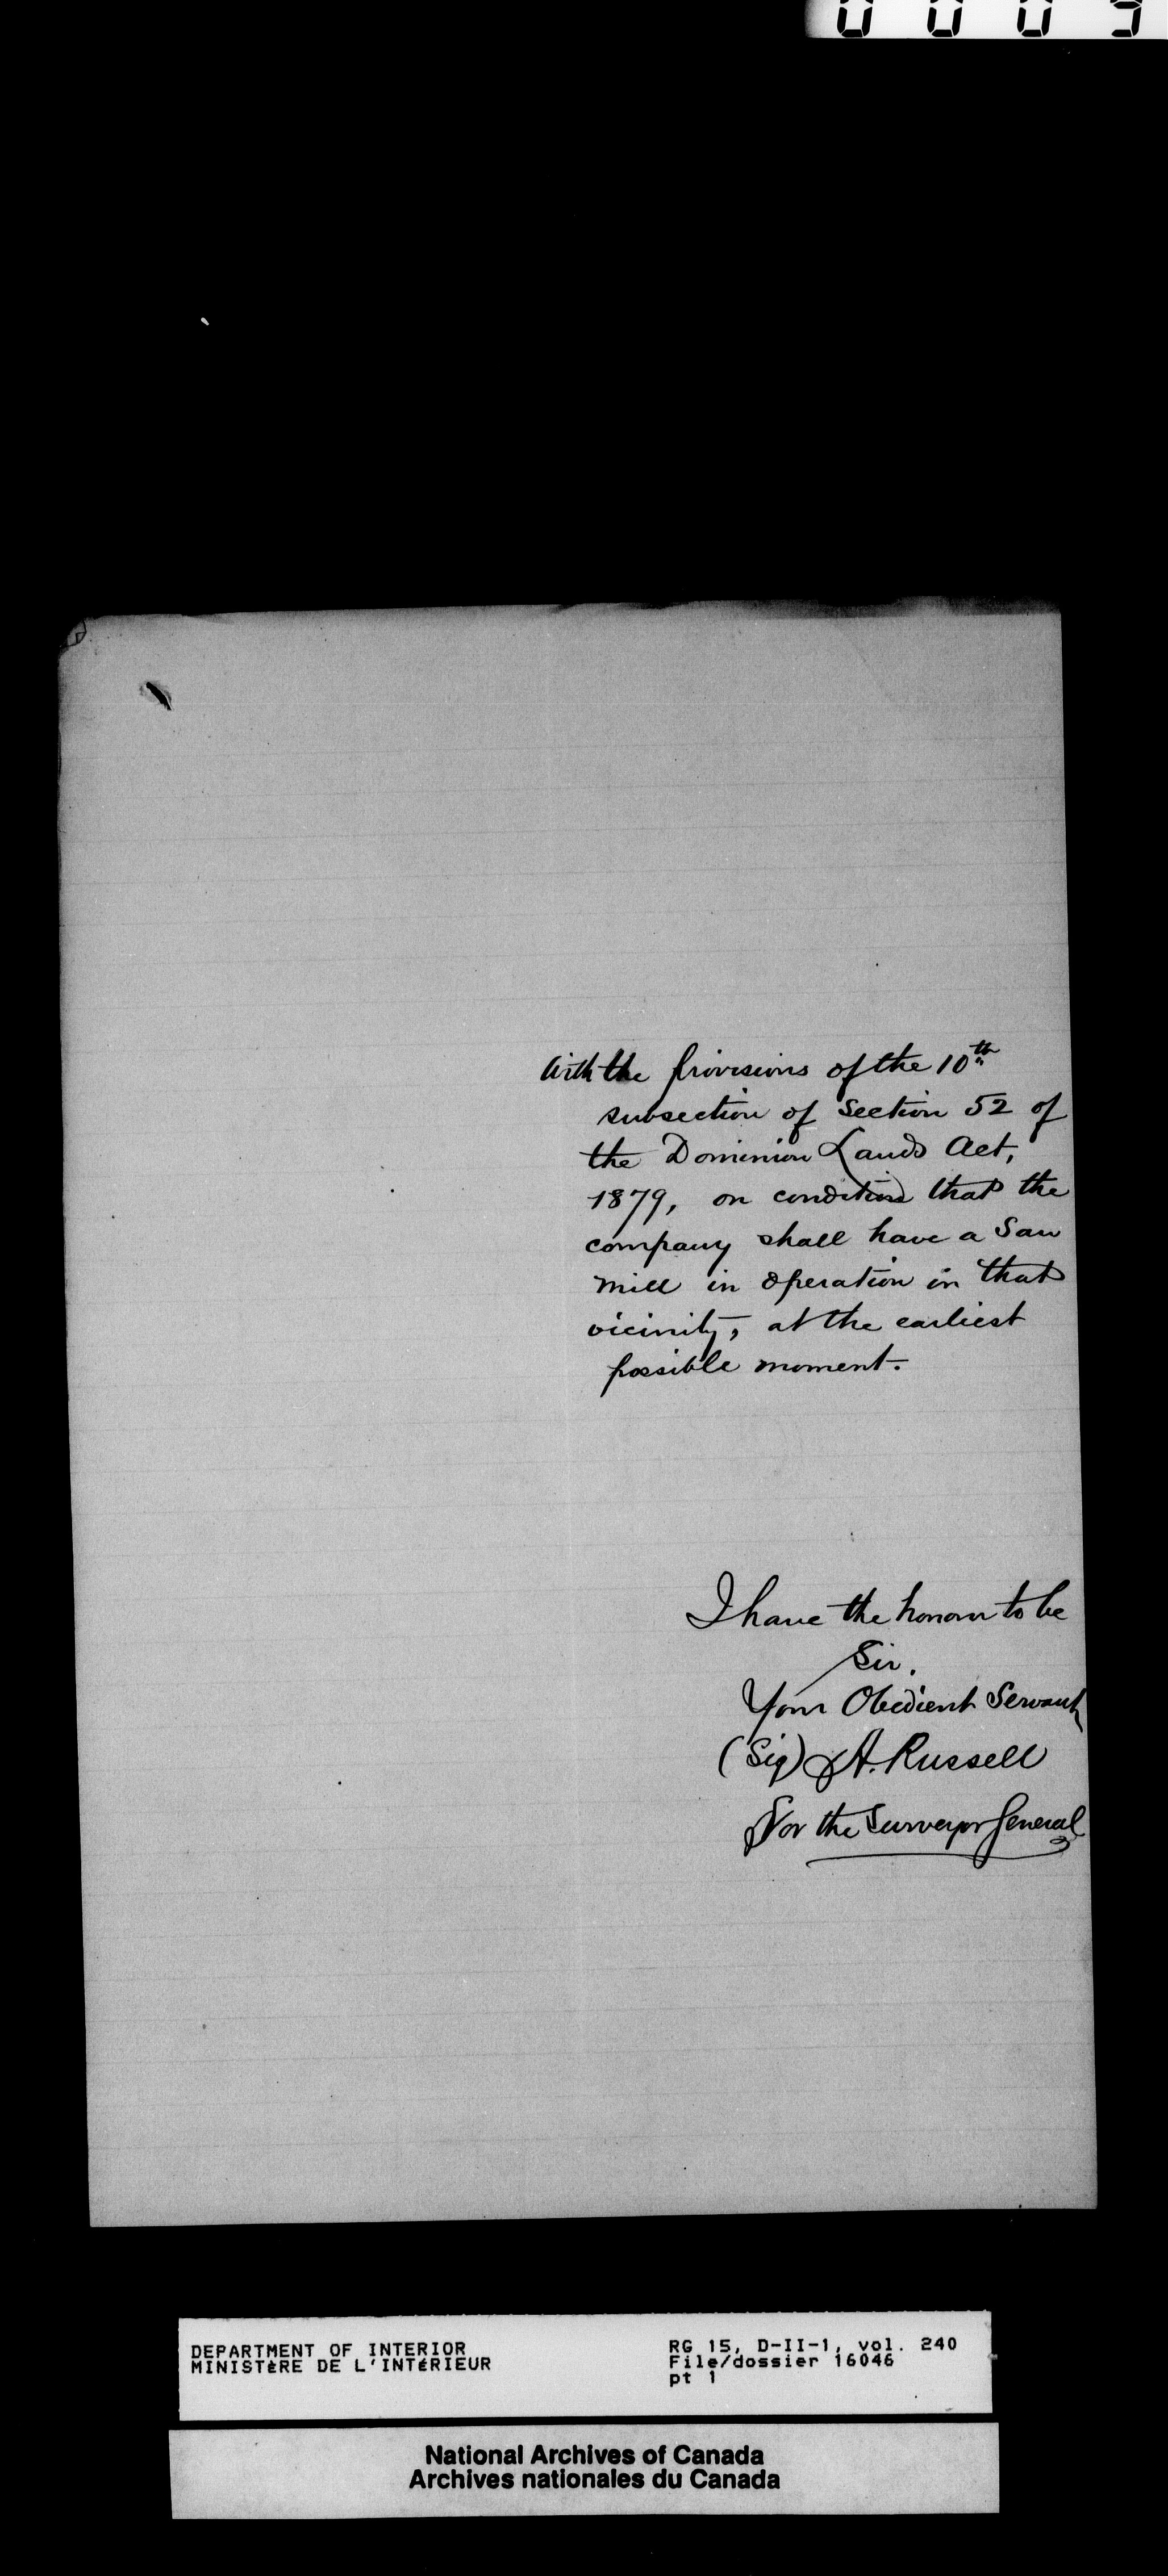 0 0 0 9
With the provisions of the 10th
subsection of Section 52 of
the Dominion Lands Act,
1879, on condition that the
company shall have a Saw
mill in operation in that
vicinity, at the earliest
possible moment.
I have the honour to be
Sir,
Your Obedient Servant
(Sig) A. Russell
For the Surveyor General
DEPARTMENT OF INTERIOR
MINISTÈRE DE L'INTÉRIEUR
RG 15, D-II-1, vol. 240
File/dossier 16046
pt 1
National Archives of Canada
Archives nationales du Canada